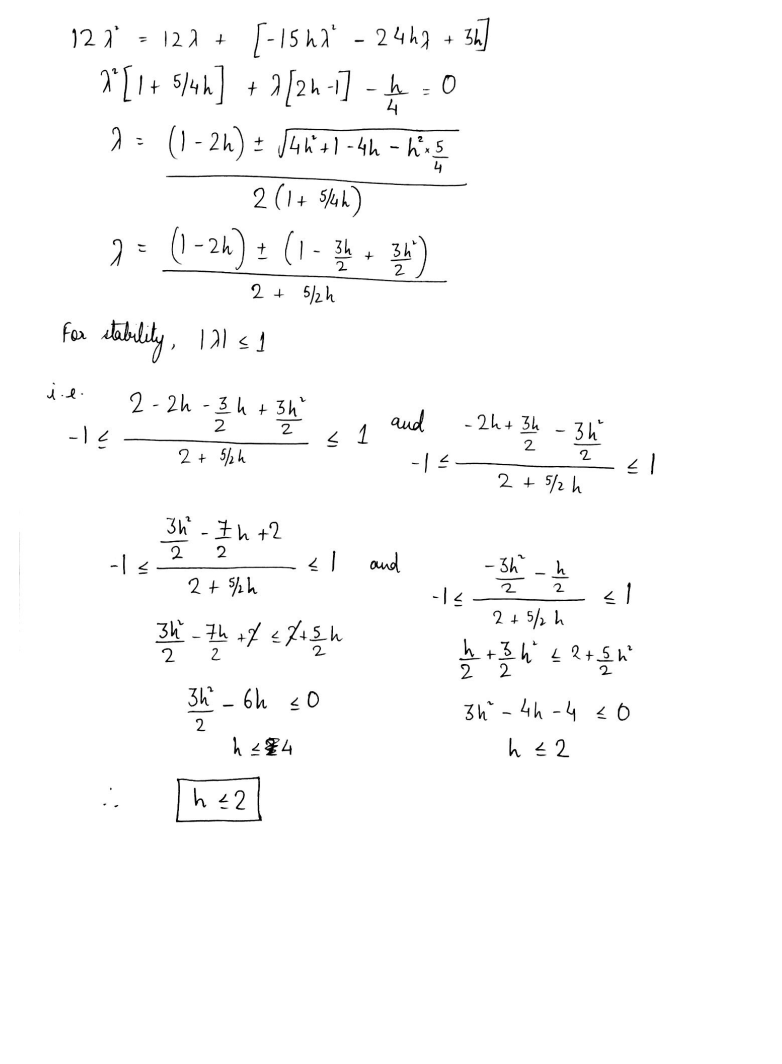 12λ² = 12λ + [-15hλ² - 24hλ + 3h]
λ²[1 + 5/4h] + λ[2h-1] - h/4 = 0
λ = ((1-2h) ± √(4h²+1-4h - h²×5/4)) / (2(1+ 5/4h))
λ = ((1-2h) ± (1 - 3h/2 + 3h²/2)) / (2 + 5/2h)
For stability, |λ| ≤ 1
i.e. -1 ≤ (2 - 2h - 3/2 h + 3h²/2) / (2 + 5/2h) ≤ 1 and -1 ≤ (-2h + 3h/2 - 3h²/2) / (2 + 5/2 h) ≤ 1
-1 ≤ (3h²/2 - 7/2 h + 2) / (2 + 5/2h) ≤ 1 and -1 ≤ (-3h²/2 - h/2) / (2 + 5/2 h) ≤ 1
3h²/2 - 7h/2 + 2 ≤ 2 + 5/2 h
h/2 + 3/2 h² ≤ 2 + 5/2 h²
3h²/2 - 6h ≤ 0
3h² - 4h - 4 ≤ 0
h ≤ 4
h ≤ 2
∴ h ≤ 2